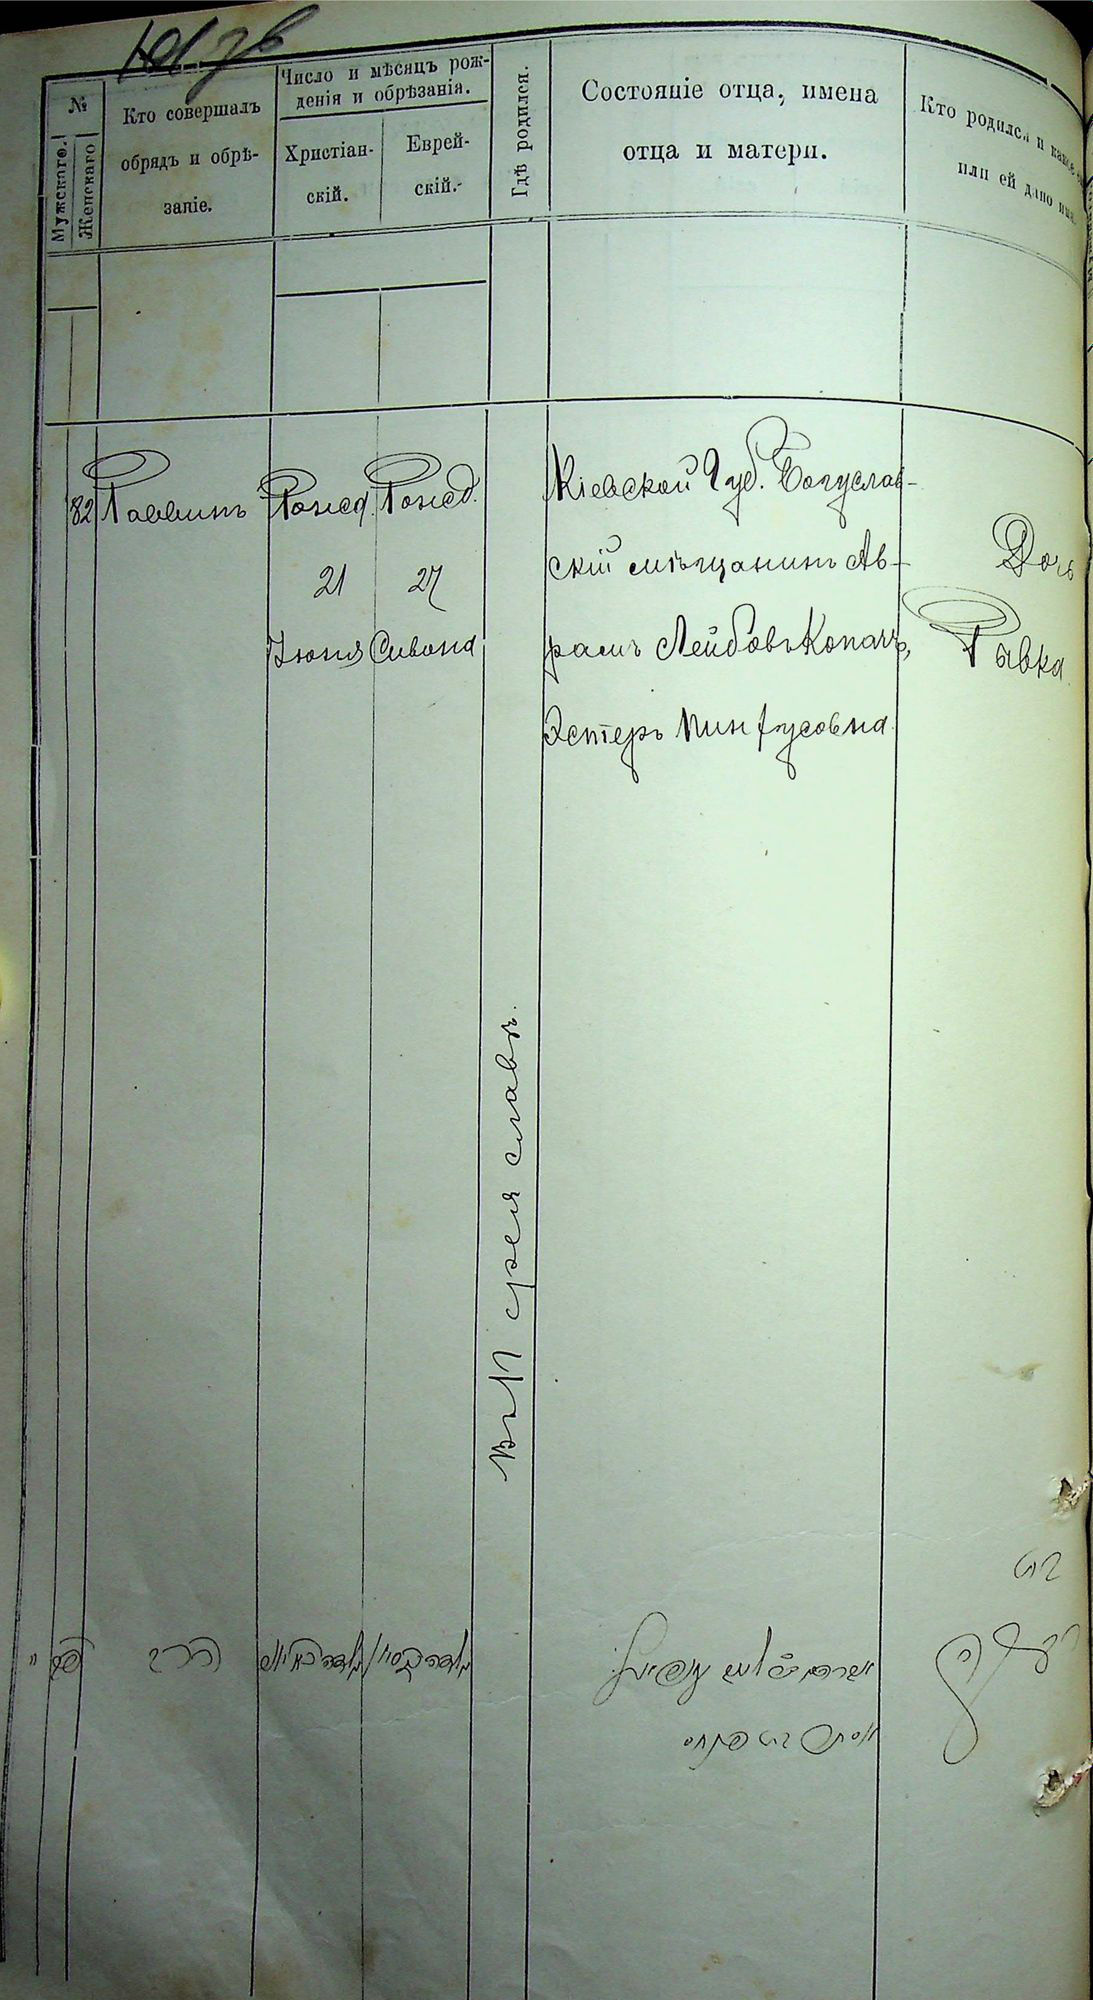 №
Мужскаго.
Женскаго
Кто совершалъ
обрядъ и обрѣ-
запіе.
Число и мѣсяцъ рож-
денія и обрѣзанія.
Христіан-
скій.
Еврей-
скій.
Гдѣ родился.
Состояніе отца, имена
отца и матери.
Кто родился и какое
или ей дано имя.
82
Раввинъ
Понед.
21
Іюня
Понед.
27
Сивана
въ г. Переяславѣ.
Кіевской Губ. Богуслав-
скій мѣщанинъ Ав-
рамъ Лейбовъ Копачъ,
Эстеръ Пинхусовна
Дочь
Рывка
בת
רבקה
הרב